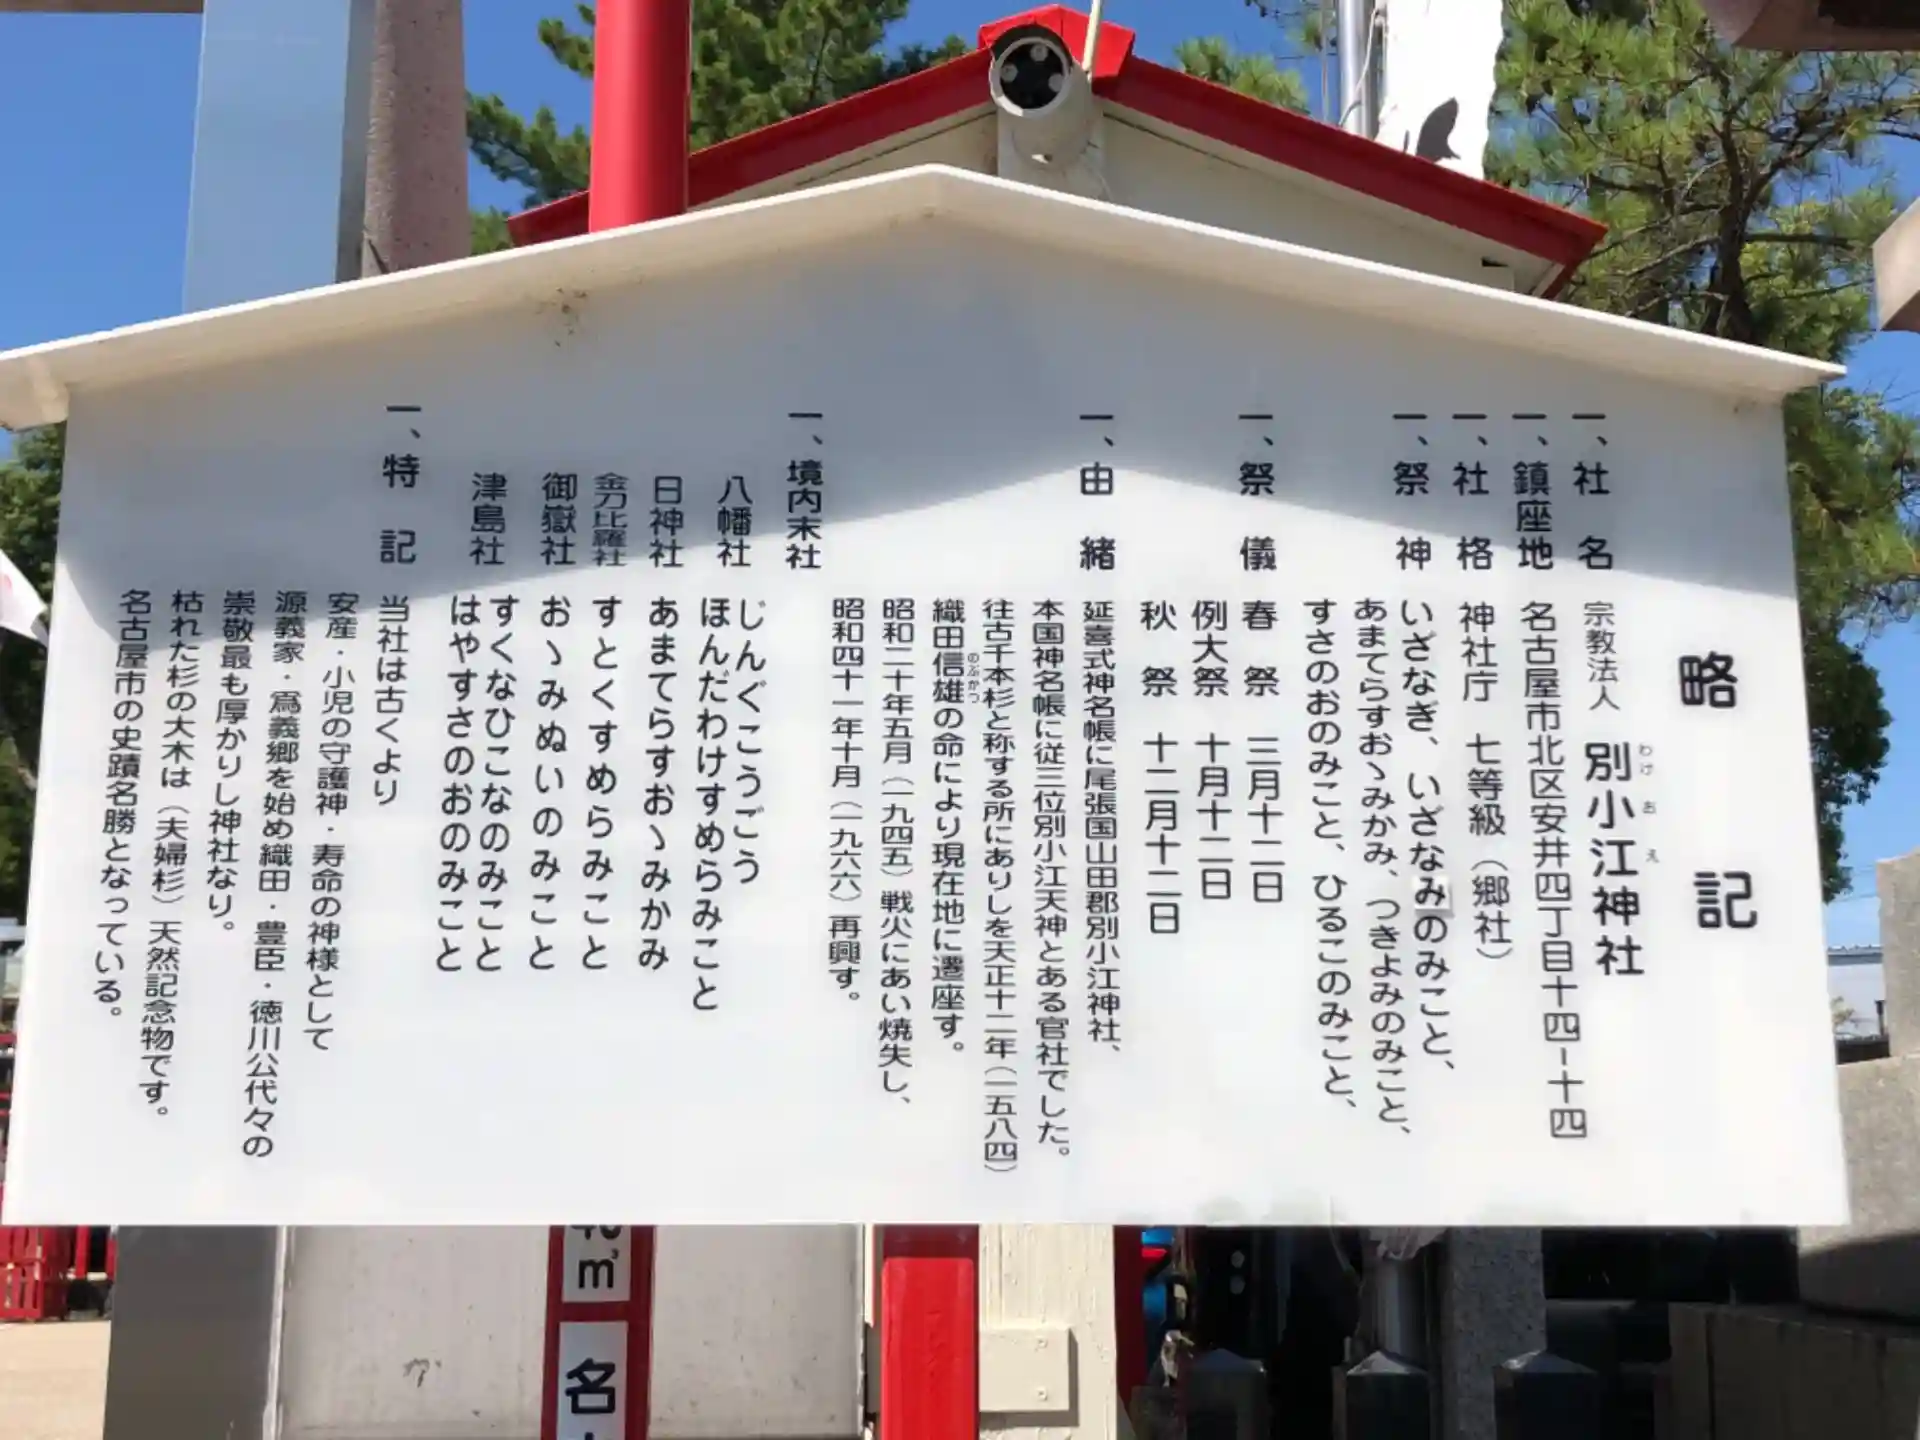 略記
一、社名 宗教法人 別小江神社
わけ お え
一、鎮座地 名古屋市北区安井四丁目十四−十四
一、社格 神社庁 七等級（郷社）
一、祭神 いざなぎ、いざなみのみこと、
あまてらすおゝみかみ、つきよみのみこと、
すさのおのみこと、ひるこのみこと、
一、祭儀 春祭 三月十二日
例大祭 十月十二日
秋祭 十二月十二日
一、由緒 延喜式神名帳に尾張国山田郡別小江神社、
本国神名帳に従三位別小江天神とある官社でした。
往古千本杉と称する所にありしを天正十二年（一五八四）
織田信雄の命により現在地に遷座す。
のぶかつ
昭和二十年五月（一九四五）戦火にあい焼失し、
昭和四十一年十月（一九六六）再興す。
一、境内末社
八幡社 じんぐこうごう
ほんだわけすめらみこと
日神社 あまてらすおゝみかみ
金刀比羅社 すとくすめらみこと
御嶽社 おゝみぬいのみこと
すくなひこなのみこと
津島社 はやすさのおのみこと
一、特記 当社は古くより
安産・小児の守護神・寿命の神様として
源義家・為義郷を始め織田・豊臣・徳川公代々の
崇敬最も厚かりし神社なり。
枯れた杉の大木は（夫婦杉）天然記念物です。
名古屋市の史蹟名勝となっている。
㎥
名